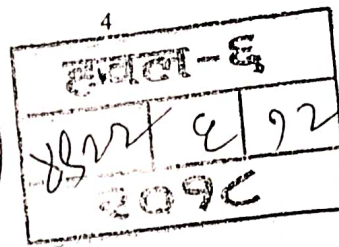 4
हवल-६
४९२२ ६ १२
२०१८